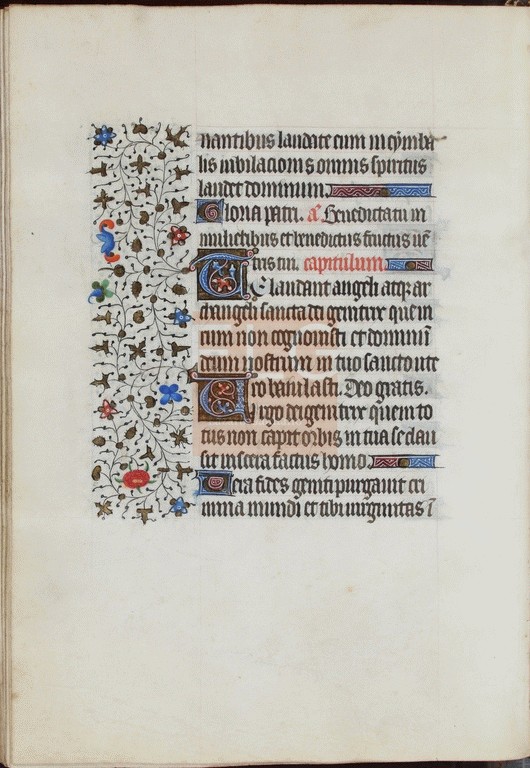 nantibus laudate eum in cymba
lis iubilacionis omnis spiritus
laudet dominum.
Gloria patri. añ Benedicta tu in
mulieribus et benedictus fructus uẽ
tris tui. capitulum
Te laudant angeli atqz ar
changeli sancta dei genitrix quem
cum non cognouisti et dominũ
deum nostrum in tuo sancto ute
ro baiulasti. Deo gratis.
Virgo dei genitrix quem to
tus non capit orbis in tua se clau
sit uiscera factus homo.
Uera fides geniti purgauit cri
mina mundi et tibi uirginitas ĩ